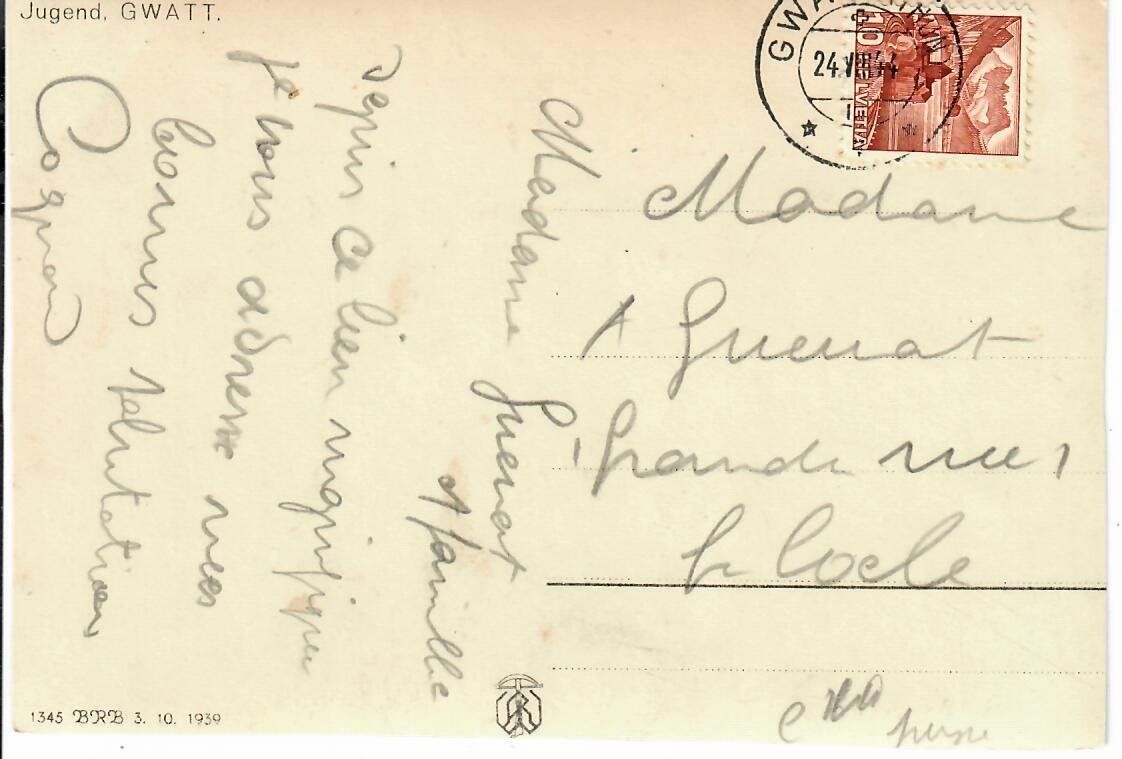 Jugend, GWATT.
Madame Guenat
& famille
Depuis ce lieu magnifique
je vous adresse mes
bonnes salutations
GWATT THUN
24.VIII.44
10
HELVETIA
Madame
Guenat
Grande rue 1
Le Locle
1345 BRB 3. 10. 1939